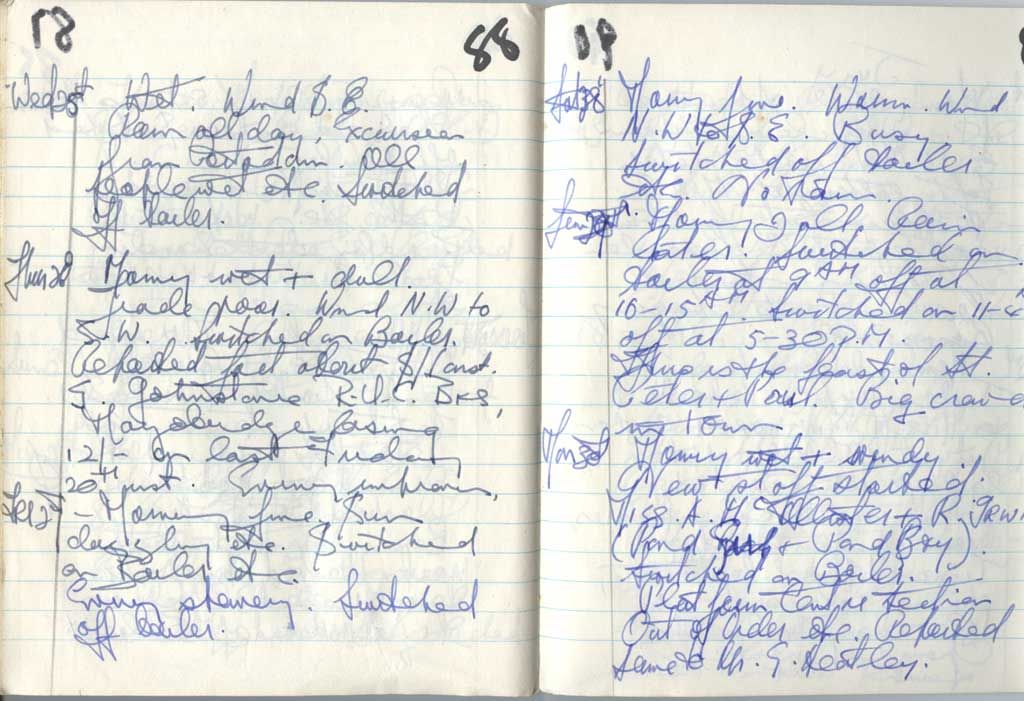 18
88
Wed 25th Wet. Wind S.E.
Rain all day, Excursion
from Portadown. All
people wet etc. Switched
off boiler.
Thurs 26 Morning wet + dull.
Trade poor. Wind N.W to
S.W. Switched on Boiler.
Reported fact about S/Const.
Johnstone R.U.C. Bks,
Maysbridge
12/- on last Friday
20th inst. Evening improving,
Fri 27 - Morning fine. Sun
dazzling etc. Switched
on Boiler etc.
Evening showery. Switched
off boiler.
19
Sat 28 Morning fine. Warm. Wind
N.W to S.E. Busy
switched off boiler
etc. No Rain.
Sun 29th. Morning dull, Rain
later. Switched on
boiler at 9 AM off at
10-15 AM. Switched on 11-4
off at 5-30 P.M.
This is the feast of St.
Peter + Paul. Big crowd
in town
Mon 30 Morning wet + windy.
New staff started.
Miss. A. + R. Irwin
(Pond + Pond Boy).
Switched on Boiler.
Platform Centre section
Out of Order etc. Reported
same to Mr. G. Heatley.